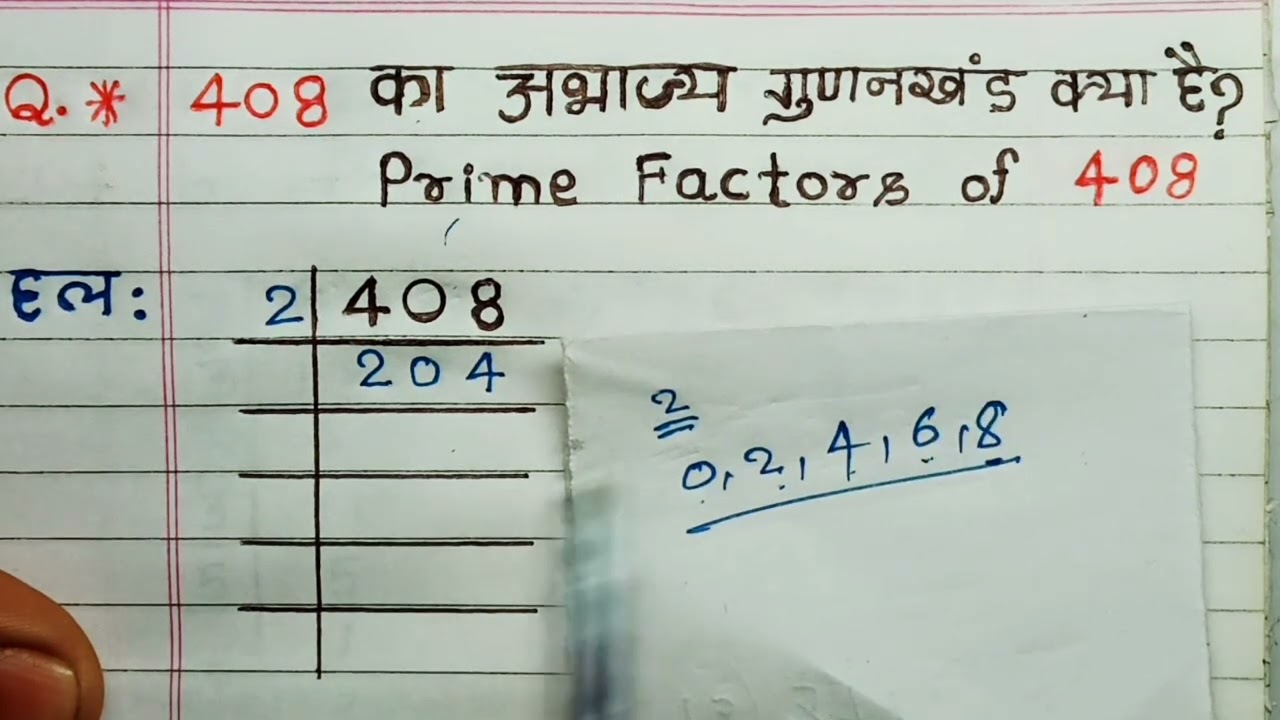 Q.* 408 का अभाज्य गुणनखंड क्या है?
Prime Factors of 408
हल:
2 | 408
204
2
0, 2, 4, 6, 8